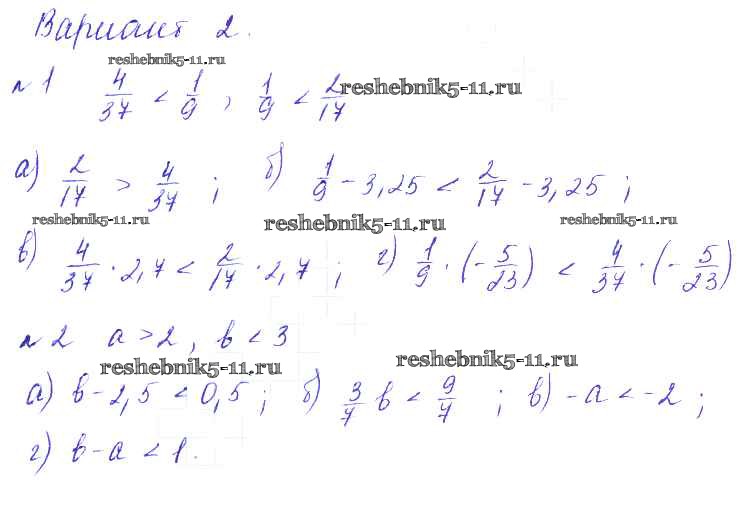 Вариант 2.
reshebnik5-11.ru
№1 4/37 < 1/9, 1/9 < 2/17
reshebnik5-11.ru
а) 2/17 > 4/37 ; б) 1/9 - 3,25 < 2/17 - 3,25 ;
reshebnik5-11.ru reshebnik5-11.ru reshebnik5-11.ru
в) 4/37 · 2,7 < 2/17 · 2,7 ; г) 1/9 · (-5/23) < 4/37 · (-5/23)
№2 a > 2, b < 3
reshebnik5-11.ru reshebnik5-11.ru
а) b - 2,5 < 0,5 ; б) 3/7 b < 9/7 ; в) -a < -2 ;
г) b - a < 1.